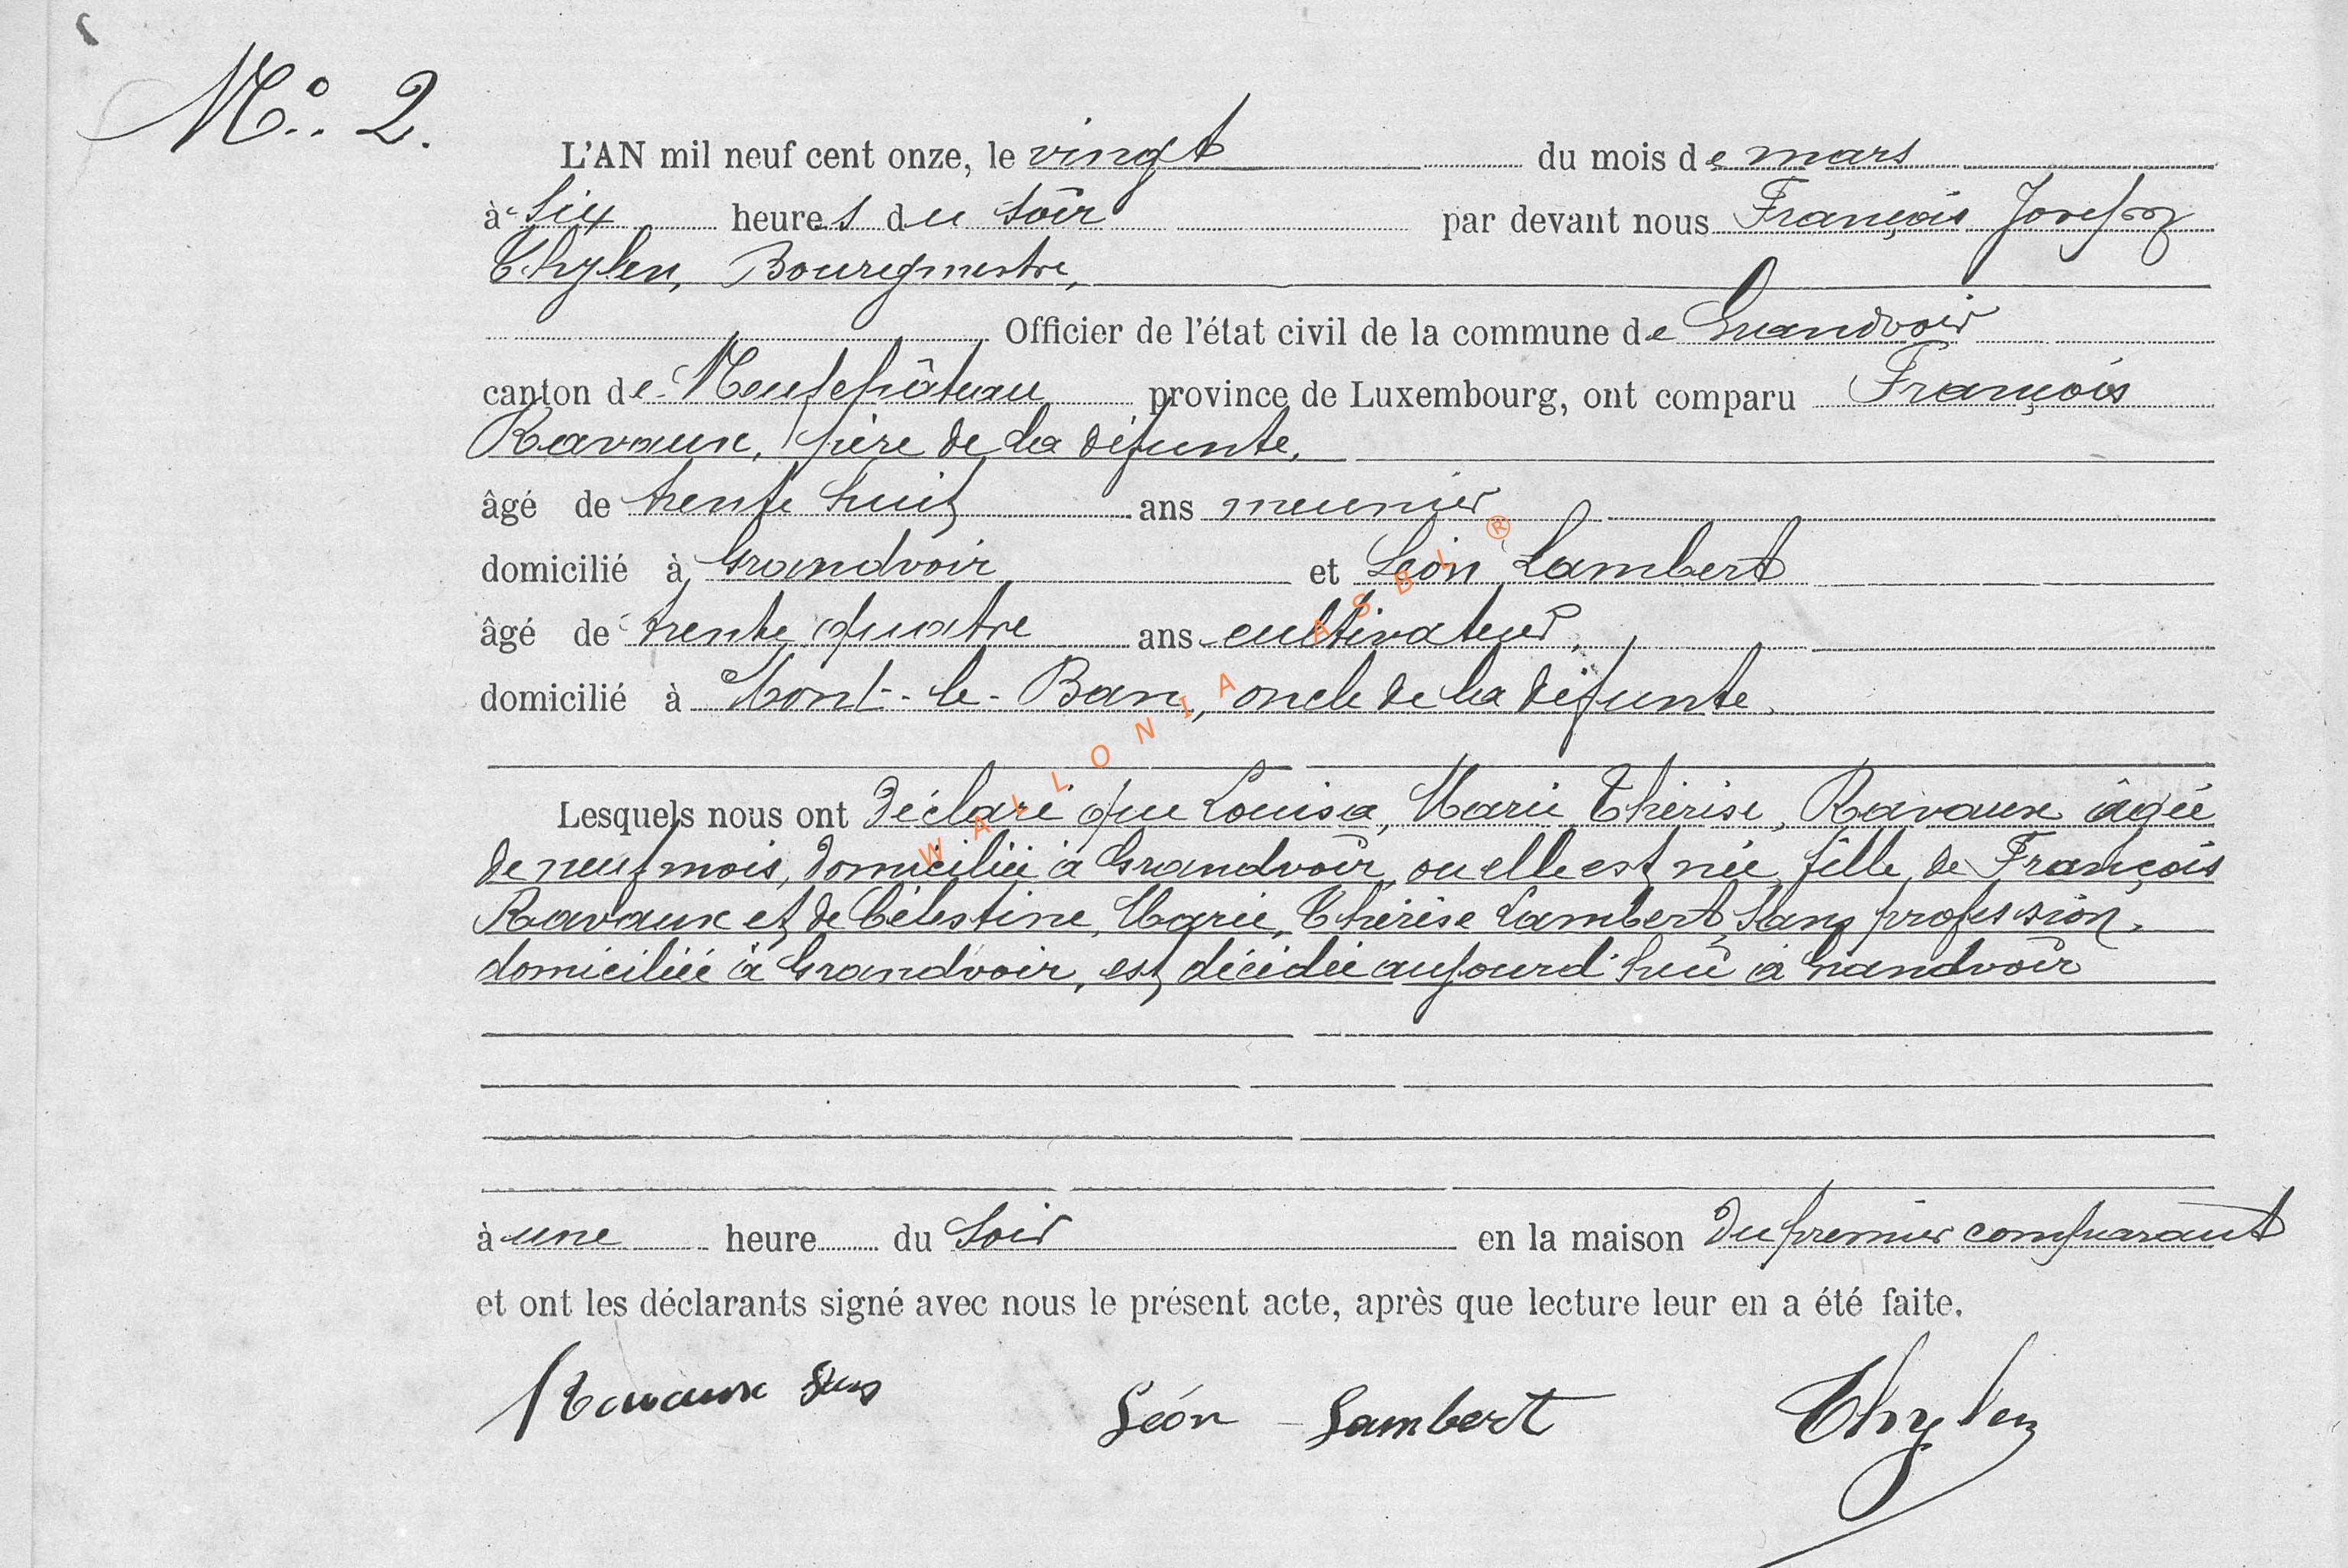 N° 2.
L'AN mil neuf cent onze, le vingt du mois de mars
à six heures du soir par devant nous François Joseph
Thylen, Bourgmestre,
Officier de l'état civil de la commune de Grandvoir
canton de Neufchâteau province de Luxembourg, ont comparu François
Ravaux, père de la défunte,
âgé de trente huit ans meunier
domicilié à Grandvoir et Léon Lambert
âgé de trente quatre ans cultivateur,
domicilié à Mont-le-Ban, oncle de la défunte.
Lesquels nous ont déclaré que Louisa, Marie, Thérèse, Ravaux âgée
de neuf mois, domiciliée à Grandvoir, ou elle est née, fille de François
Ravaux et de Célestine, Marie, Thérèse Lambert, sans profession,
domiciliée à Grandvoir, est décédée aujourd'hui à Grandvoir
à une heure du soir en la maison du premier comparant
et ont les déclarants signé avec nous le présent acte, après que lecture leur en a été faite.
Ravaux Léon Lambert Thylen
WALLONIA ASBL ®